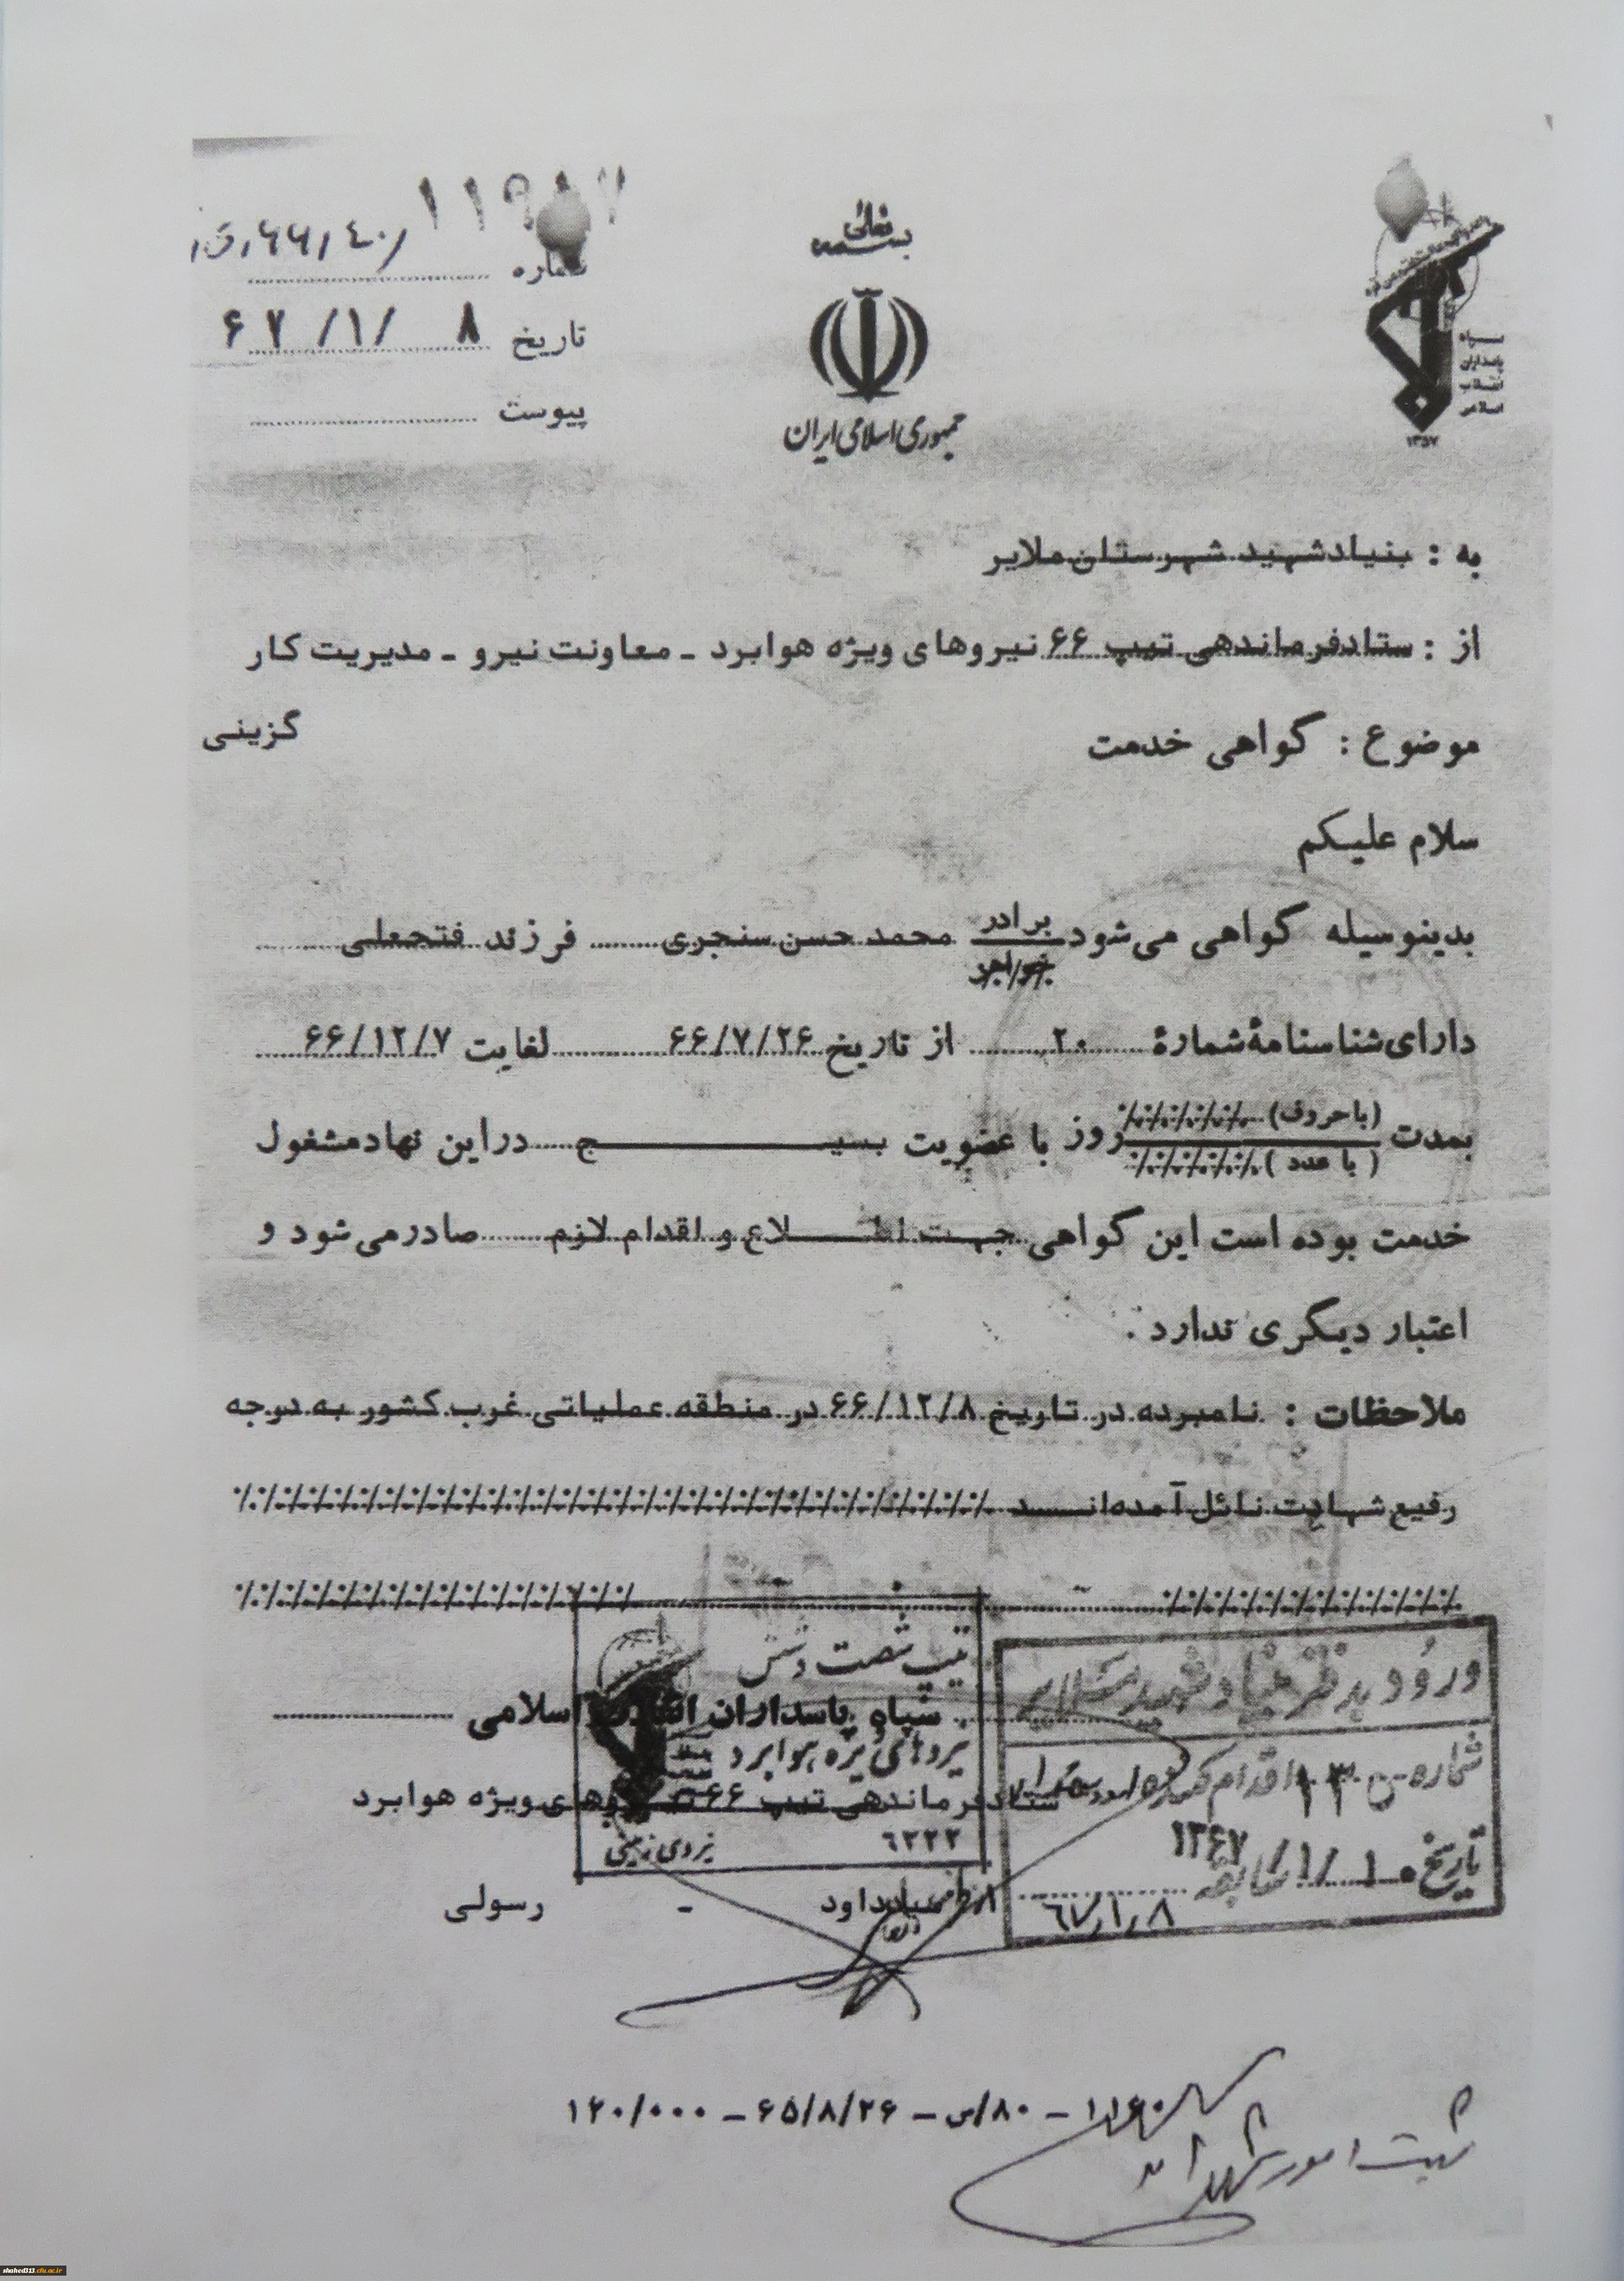 بسمه تعالی
جمهوری اسلامی ایران
سپاه
پاسداران
انقلاب
اسلامی
۱۳۵۷
شماره
تاریخ ۶۷/۱/۸
پیوست
به : بنیاد شهید شهرستان ملایر
از : ستاد فرماندهی تیپ ۶۶ نیروهای ویژه هوابرد ـ معاونت نیرو ـ مدیریت کار
گزینی
موضوع : گواهی خدمت
سلام علیکم
بدینوسیله گواهی می‌شود برادر محمد حسن سنجری فرزند فتحعلی
خواهر
دارای شناسنامهٔ شمارهٔ ۲۰ از تاریخ ۶۶/۷/۲۶ لغایت ۶۶/۱۲/۷
بمدت (با حروف) روز با عضویت بسیج در این نهاد مشغول
(با عدد)
خدمت بوده است این گواهی جهت اطلاع و اقدام لازم صادر می‌شود و
اعتبار دیگری ندارد .
ملاحظات : نامبرده در تاریخ ۶۶/۱۲/۸ در منطقه عملیاتی غرب کشور به درجه
رفیع شهادت نائل آمده‌اند
تیپ شصت و شش
سپاه پاسداران انقلاب اسلامی
نیروهای ویژه هوابرد
ستاد فرماندهی تیپ ۶۶ نیروهای ویژه هوابرد
۶۲۲۲
نیروی زمینی
داود - رسولی
ورود به دفتر بنیاد شهید ملایر
شماره
تاریخ ۱۰/۱/۱۳۶۷
۶۷/۱/۸
۸۰/س – ۶۵/۸/۲۶ – ۱۲۰/۰۰۰
ثبت امور شهدا
shahed313.cfu.ac.ir